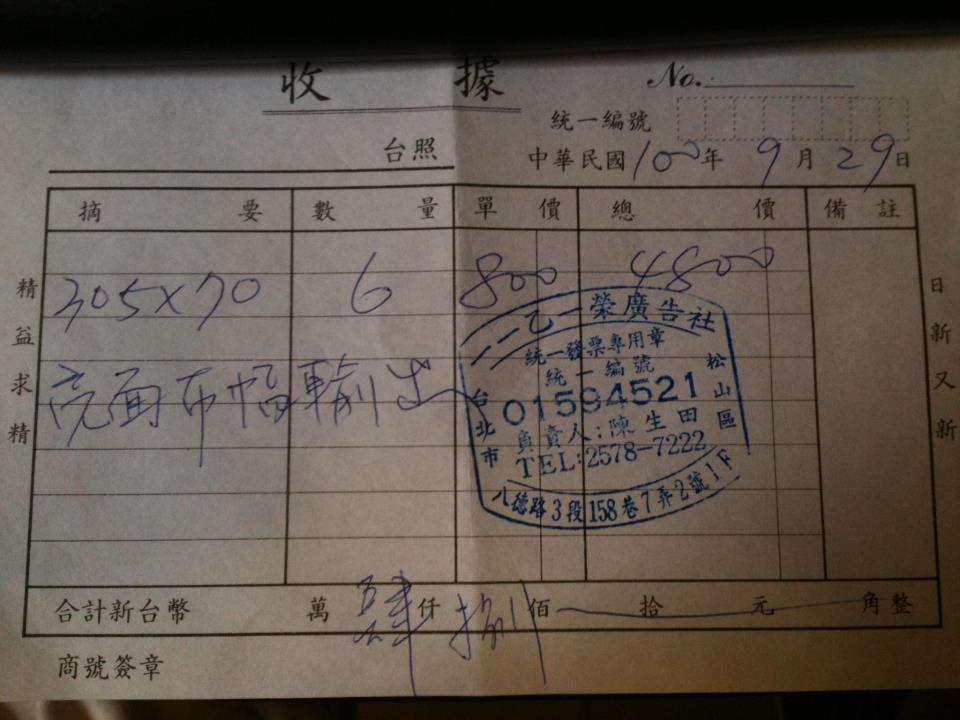 收 據 No.
統一編號
台照 中華民國100年9月29日
摘 要 數 量 單 價 總 價 備 註
305x70 6 800 4800
亮面布幅輸出
一乙一榮廣告社
統一發票專用章
統一編號
01594521
負責人:陳生田
TEL:2578-7222
台北市 松山區
八德路3段158巷7弄2號1F
精益求精
日新又新
合計新台幣 萬 肆 仟 捌 佰 拾 元 角整
商號簽章